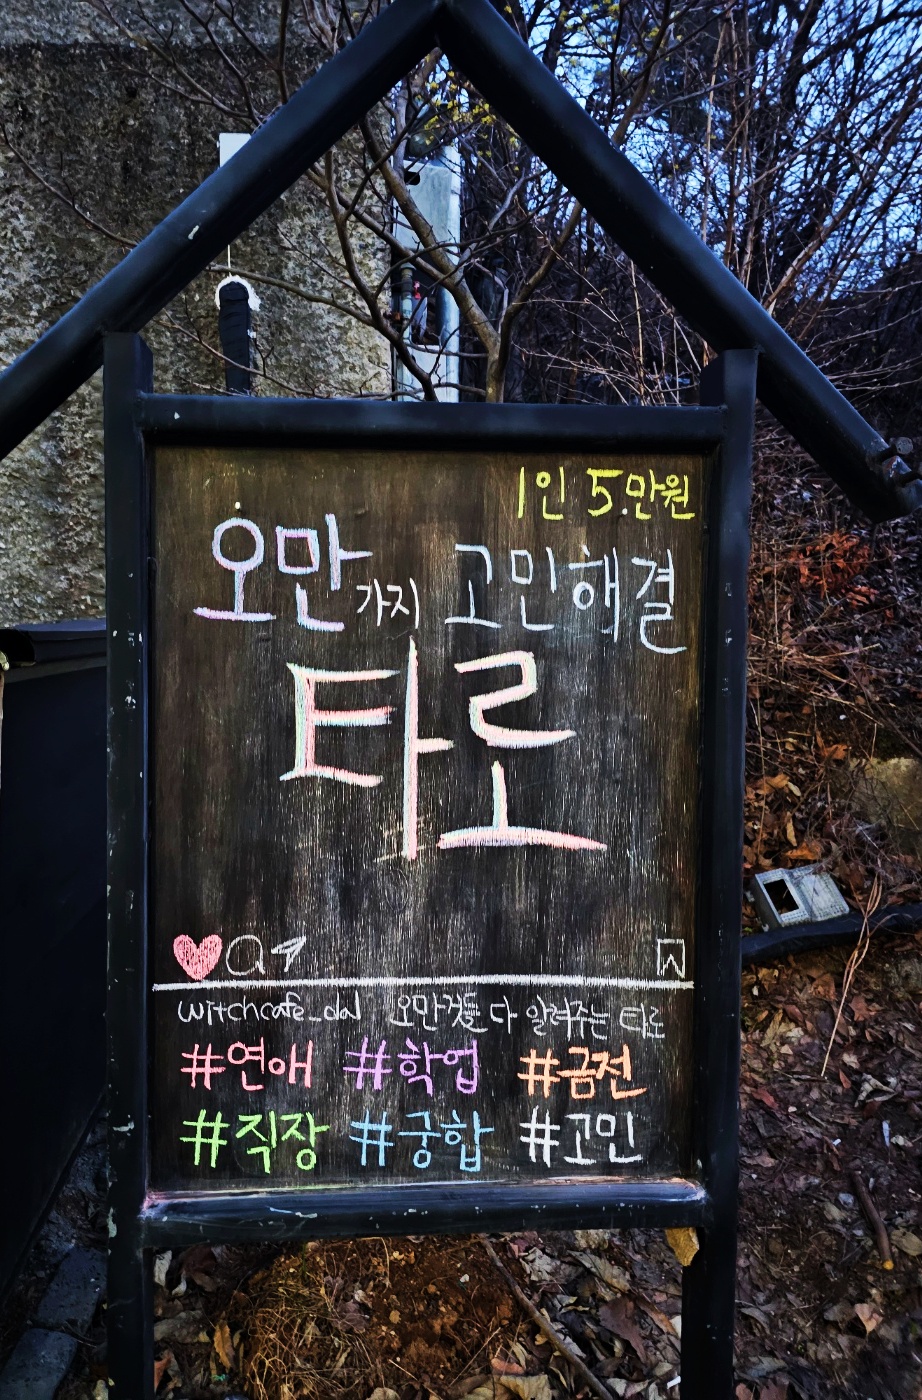 1인 5.만원
오만가지 고민해결
타로
witchcafe_dal 오만것들 다 알려주는 타로
#연애 #학업 #금전
#직장 #궁합 #고민